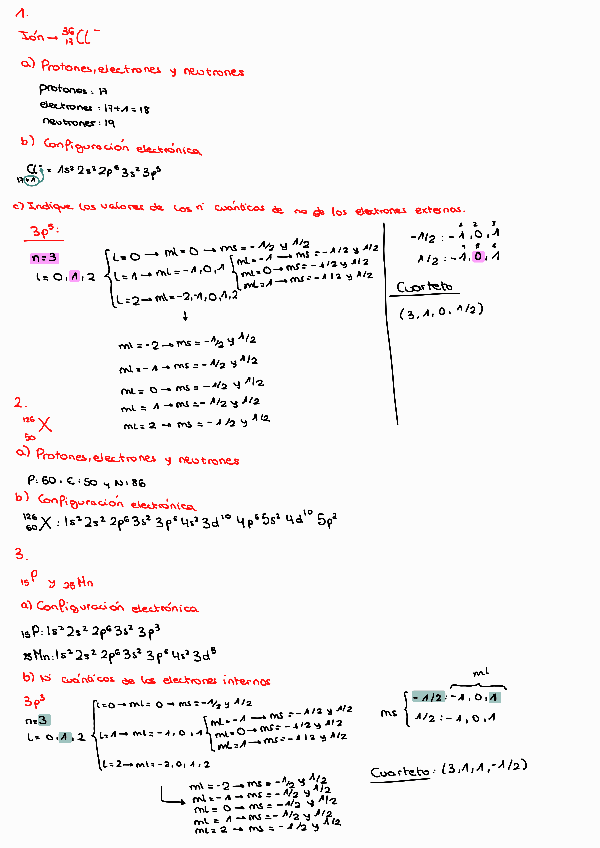 1.
Ión → ³⁶₁₇Cl⁻
a) Protones, electrones y neutrones
protones: 17
electrones: 17+1=18
neutrones: 19
b) Configuración electrónica
Cl⁻ = 1s² 2s² 2p⁶ 3s² 3p⁵
17+1
c) Indique los valores de los nº cuánticos de no de los electrones externos.
3p⁵:
n=3
l = 0, 1, 2
l=0 → ml=0 → ms=-1/2 y 1/2
l=1 → ml=-1,0,1
ml=-1 → ms=-1/2 y 1/2
ml=0 → ms=-1/2 y 1/2
ml=1 → ms=-1/2 y 1/2
l=2 → ml=-2,-1,0,1,2
↓
ml=-2 → ms=-1/2 y 1/2
ml=-1 → ms=-1/2 y 1/2
ml=0 → ms=-1/2 y 1/2
ml=1 → ms=-1/2 y 1/2
ml=2 → ms=-1/2 y 1/2
1 2 3
-1/2: -1,0,1
4 5 6
1/2: -1,0,1
Cuarteto
(3,1,0,1/2)
2.
¹²⁶₅₀X
a) Protones, electrones y neutrones
b) Configuración electrónica
X: 1s² 2s² 2p⁶ 3s² 3p⁶ 4s² 3d¹⁰ 4p⁶ 5s² 4d¹⁰ 5p²
3.
₁₅P y ₂₅Mn
a) Configuración electrónica
₁₅P: 1s² 2s² 2p⁶ 3s² 3p³
₂₅Mn: 1s² 2s² 2p⁶ 3s² 3p⁶ 4s² 3d⁵
b) Nº cuánticos de los electrones internos
3p³
n=3
l=0,1,2
l=0 → ml=0 → ms=-1/2 y 1/2
l=1 → ml=-1,0,1
ml=-1 → ms=-1/2 y 1/2
ml=0 → ms=-1/2 y 1/2
ml=1 → ms=-1/2 y 1/2
l=2 → ml=-2,0,1,2
ml=-2 → ms=-1/2 y 1/2
ml=-1 → ms=-1/2 y 1/2
ml=0 → ms=-1/2 y 1/2
ml=1 → ms=-1/2 y 1/2
ml=2 → ms=-1/2 y 1/2
ml
ms
-1/2: -1,0,1
1/2: -1,0,1
Cuarteto: (3,1,1,-1/2)